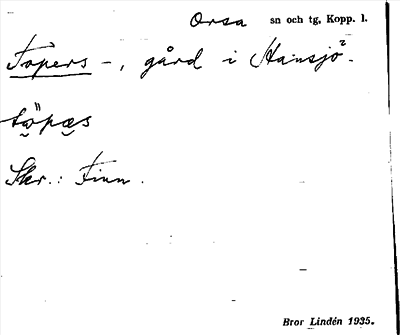 Orsa sn och tg, Kopp. l.
Topers -, gård i Hansjö 2.
Skr.: Finn.
Bror Lindén 1935.